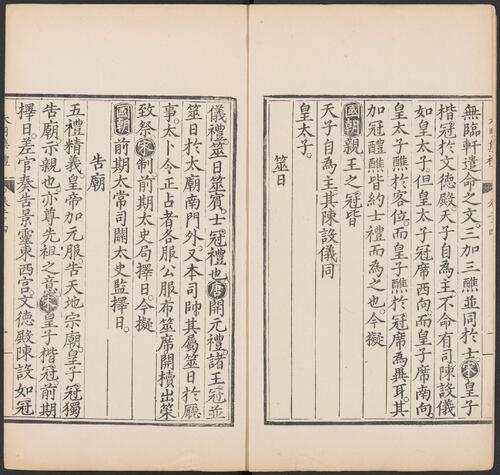 無臨軒遣命之文三加三醮並同於士宋皇子
楷冠於文德殿天子自為主不命有司陳設儀
如皇太子但皇太子冠席西向而皇子席南向
皇太子醮於客位而皇子醮於冠席為異耳其
加冠醴醮皆約士禮而為之也今擬
國朝親王之冠皆
天子自為主其陳設儀同
皇太子
筮日
儀禮筮日筮賓士冠禮也唐開元禮諸王冠並
筮日於太廟南門外又本司帥其屬筮日於廳
事太卜令正占者各服公服布筮席開櫝出筞
致祭宋制前期太史局擇日今擬
國朝前期太常司關太史監擇日
告廟
五禮精義皇帝加元服告天地宗廟皇子冠獨
告廟示親也亦尊先祖之意宋皇子楷冠前期
擇日差官奏告景靈東西宮文德殿陳設如冠